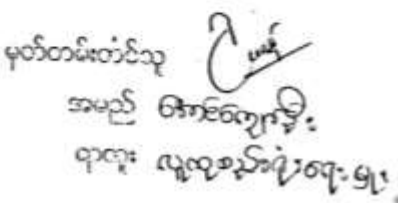 မှတ်တမ်းတင်သူ
အမည် အောင်ကျော်ဦး
ရာထူး လူထုစည်းရုံးရေးမှူး